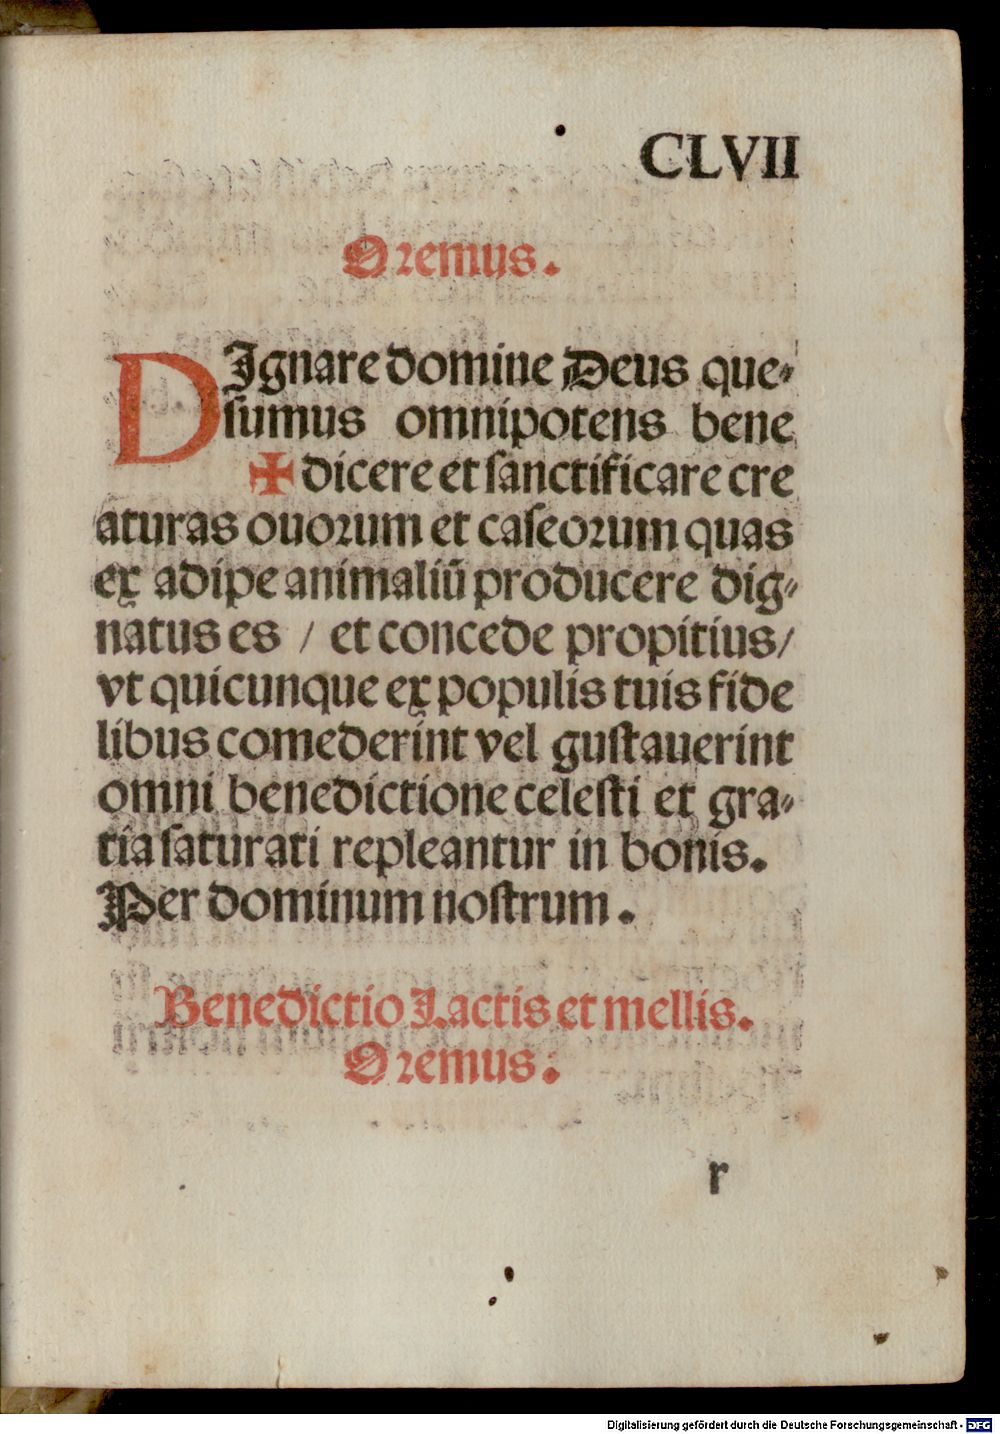 CLVII
Oremus.
DIgnare domine Deus que-
sumus omnipotens bene
✠ dicere et sanctificare cre
aturas ouorum et caseorum quas
ex adipe animaliū producere dig-
natus es / et concede propitius/
vt quicunque ex populis tuis fide
libus comederint vel gustauerint
omni benedictione celesti et gra-
tia saturati repleantur in bonis.
Per dominum nostrum.
Benedictio Lactis et mellis.
Oremus:
r
Digitalisierung gefördert durch die Deutsche Forschungsgemeinschaft - DFG